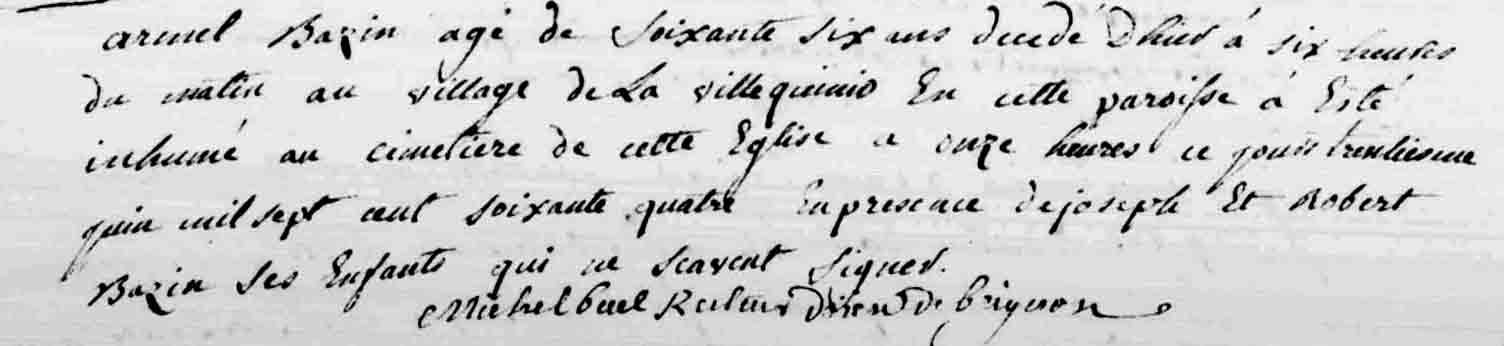 armel Bazin agé de soixante six ans decedé D'hier à six heures
du matin au village de La villequinio En cette paroisse a Esté
inhumé au cimetiere de cette Eglise a onze heures ce jour trentiesme
juin mil sept cent soixante quatre En presence de joseph Et Robert
Bazin ses Enfants qui ne scavent signer.
Michel Recteur de